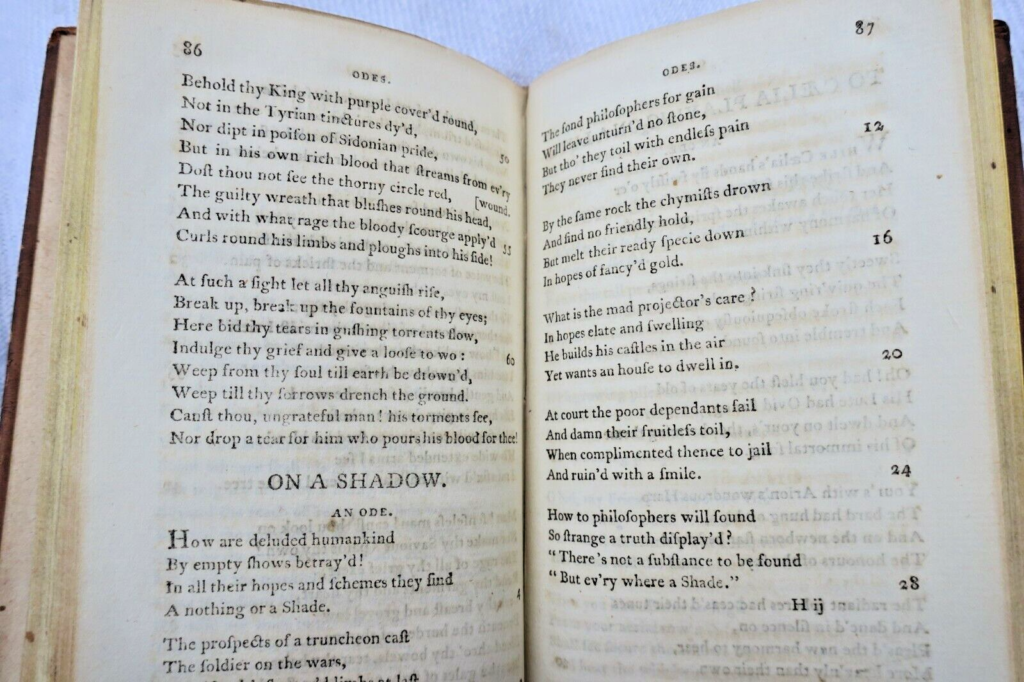 86
ODES.
Behold thy King with purple cover'd round,
Not in the Tyrian tinctures dy'd,
Nor dipt in poiſon of Sidonian pride, 50
But in his own rich blood that ſtreams from ev'ry
Doſt thou not ſee the thorny circle red, [wound.
The guilty wreath that bluſhes round his head,
And with what rage the bloody ſcourge apply'd 55
Curls round his limbs and ploughs into his ſide!
At ſuch a ſight let all thy anguiſh riſe,
Break up, break up the fountains of thy eyes;
Here bid thy tears in guſhing torrents flow,
Indulge thy grief and give a looſe to wo: 60
Weep from thy ſoul till earth be drown'd,
Weep till thy ſorrows drench the ground.
Canſt thou, ungrateful man! his torments ſee,
Nor drop a tear for him who pours his blood for thee!
ON A SHADOW.
AN ODE.
How are deluded humankind
By empty ſhows betray'd!
In all their hopes and ſchemes they find
A nothing or a Shade. 4
The proſpects of a truncheon caſt
The ſoldier on the wars,
87
ODES.
The fond philoſophers for gain
Will leave unturn'd no ſtone,
But tho' they toil with endleſs pain 12
They never find their own.
By the ſame rock the chymiſts drown
And find no friendly hold,
But melt their ready ſpecie down 16
In hopes of fancy'd gold.
What is the mad projector's care?
In hopes elate and ſwelling
He builds his caſtles in the air
Yet wants an houſe to dwell in. 20
At court the poor dependants fail
And damn their fruitleſs toil,
When complimented thence to jail
And ruin'd with a ſmile. 24
How to philoſophers will ſound
So ſtrange a truth diſplay'd?
"There's not a ſubſtance to be found
"But ev'ry where a Shade." 28
H ij